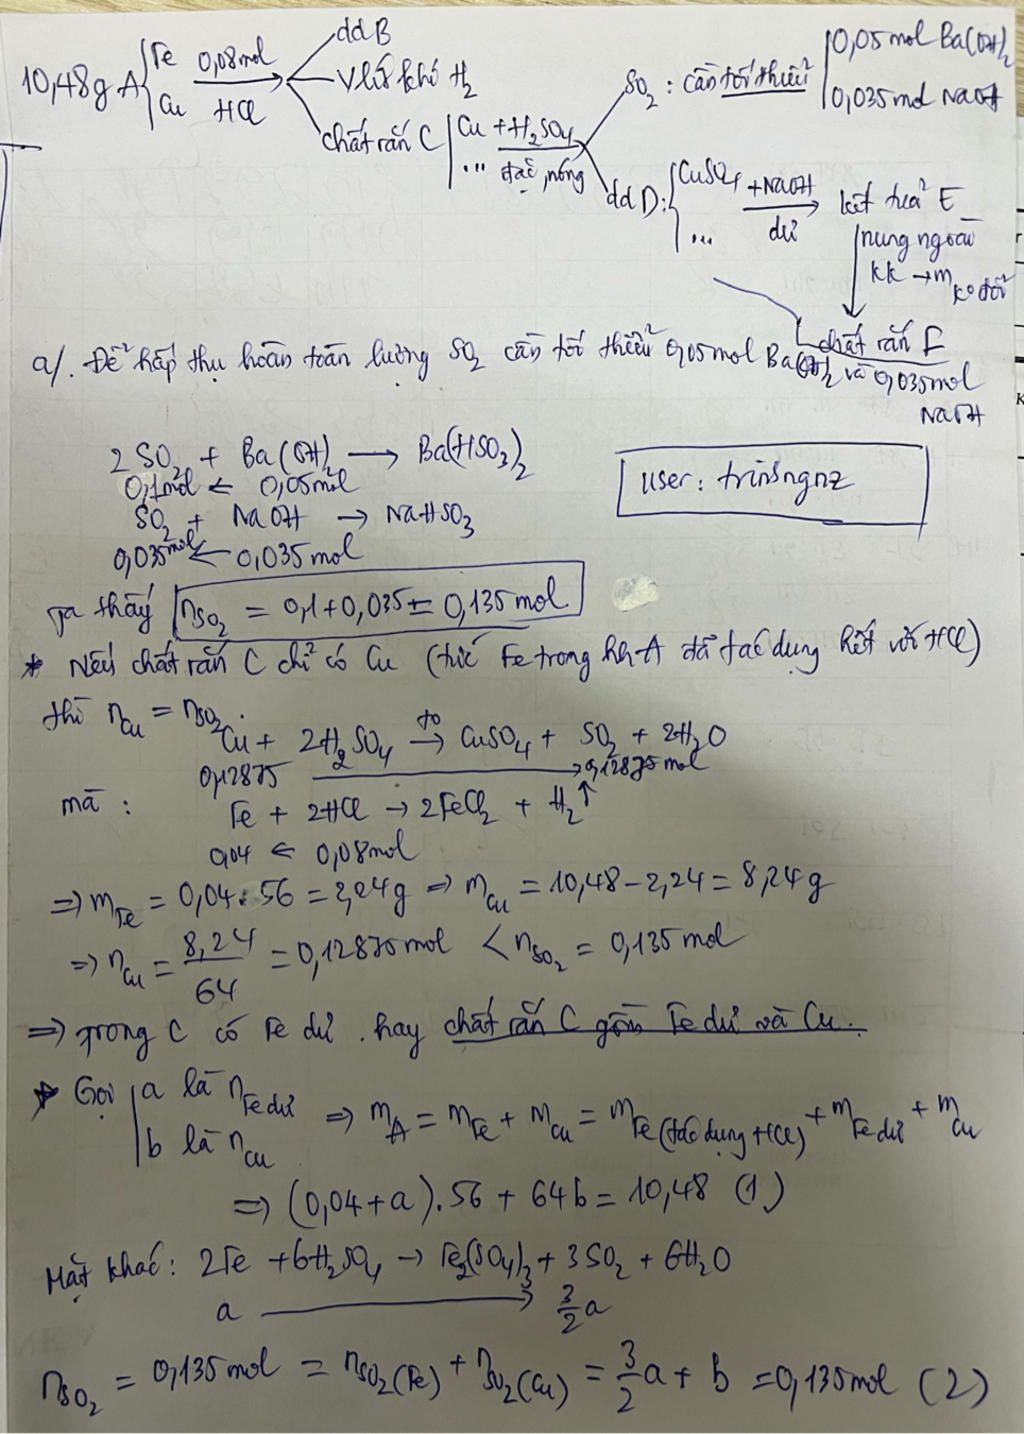 10,48g A { Fe Cu 0,08mol HCl → ddB
V lít khí H₂
chất rắn C | Cu ... + H₂SO₄ đặc, nóng
SO₂ : cần tối thiểu | 0,05 mol Ba(OH)₂
0,035 mol NaOH
dd D: { CuSO₄ ... +NaOH dư → kết tủa E
nung ngoài
kk → m k° đổi
chất rắn F
a/. Để hấp thụ hoàn toàn lượng SO₂ cần tối thiểu 0,05mol Ba(OH)₂ và 0,035mol
NaOH
2SO₂ + Ba(OH)₂ → Ba(HSO₃)₂
0,1mol ← 0,05mol
user: trinsngnz
SO₂ + NaOH → NaHSO₃
0,035mol ← 0,035 mol
Ta thấy n SO₂ = 0,1 + 0,035 = 0,135 mol
* Nếu chất rắn C chỉ có Cu (tức Fe trong hh A đã tác dụng hết với HCl)
thì nCu = nSO₂.
Cu + 2H₂SO₄ t° → CuSO₄ + SO₂ + 2H₂O
0,12875 → 0,12875 mol
mà : Fe + 2HCl → 2FeCl₂ + H₂↑
0,04 ← 0,08mol
⇒ mFe = 0,04 . 56 = 2,24g ⇒ mCu = 10,48 - 2,24 = 8,24g
⇒ nCu = 8,24/64 = 0,12875 mol < nSO₂ = 0,135 mol
⇒ Trong C có Fe dư . hay chất rắn C gồm Fe dư và Cu.
* Gọi | a là nFe dư
b là nCu ⇒ mA = mFe + mCu = mFe (tác dụng HCl) + mFe dư + mCu
⇒ (0,04 + a).56 + 64b = 10,48 (1)
Mặt khác: 2Fe + 6H₂SO₄ → Fe₂(SO₄)₃ + 3SO₂ + 6H₂O
a → 3/2 a
nSO₂ = 0,135 mol = nSO₂(Fe) + nSO₂(Cu) = 3/2 a + b = 0,135 mol (2)